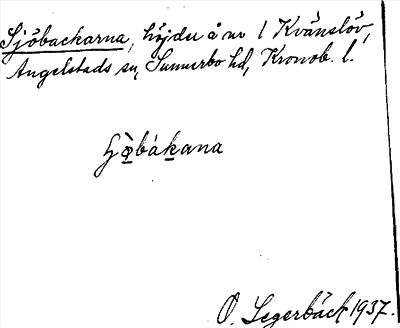 Sjöbackarna, höjder å nr 1 Kvänslöv,
Angelstads sn, Sunnerbo hd, Kronob. l.
ɧø̀bákana
O. Segerbäck 1937.